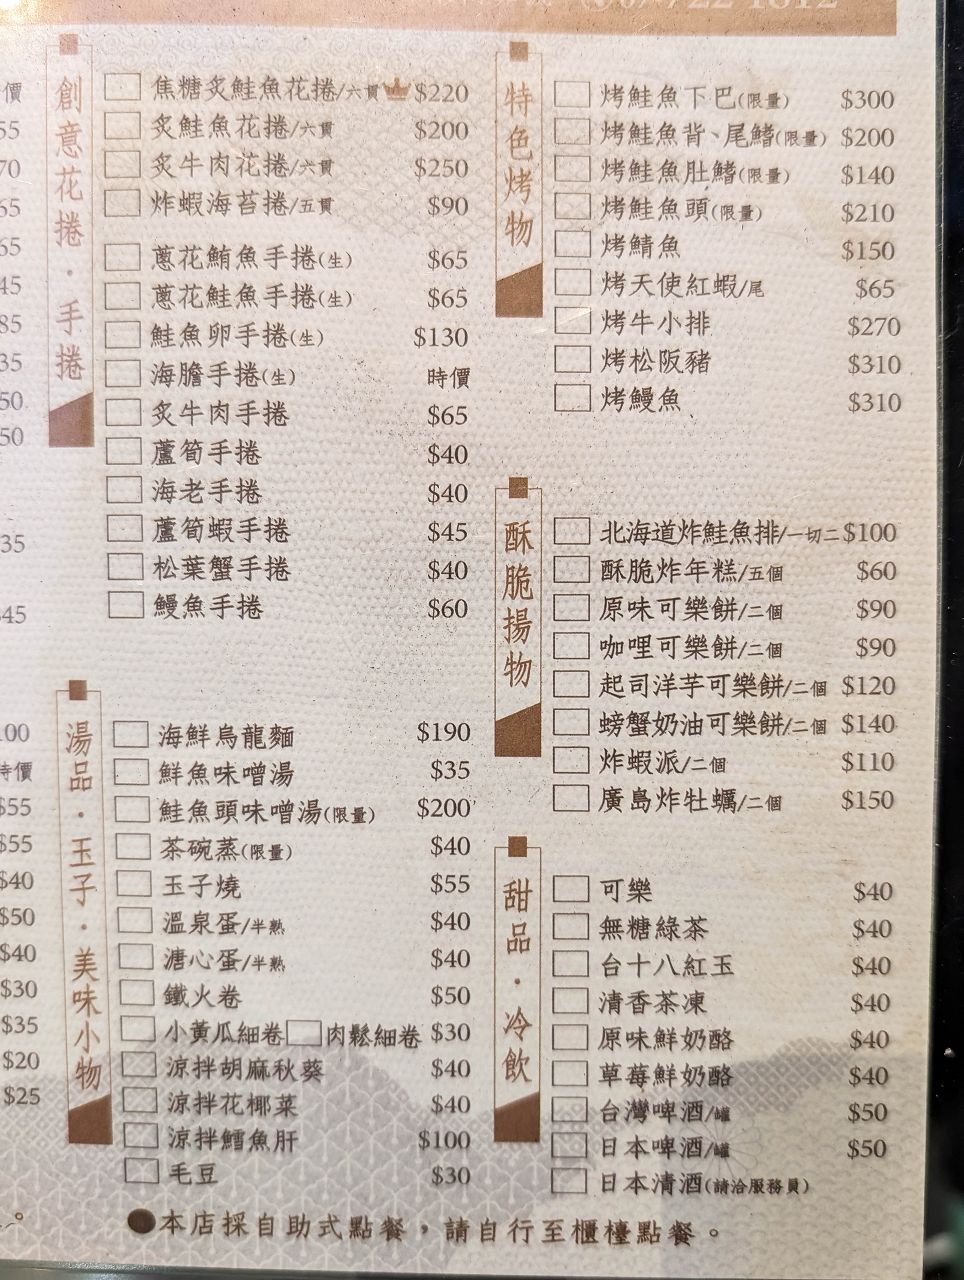 創意花捲・手捲
焦糖炙鮭魚花捲/六貫 $220
炙鮭魚花捲/六貫 $200
炙牛肉花捲/六貫 $250
炸蝦海苔捲/五貫 $90
蔥花鮪魚手捲(生) $65
蔥花鮭魚手捲(生) $65
鮭魚卵手捲(生) $130
海膽手捲(生) 時價
炙牛肉手捲 $65
蘆筍手捲 $40
海老手捲 $40
蘆筍蝦手捲 $45
松葉蟹手捲 $40
鰻魚手捲 $60
湯品・玉子・美味小物
海鮮烏龍麵 $190
鮮魚味噌湯 $35
鮭魚頭味噌湯(限量) $200
茶碗蒸(限量) $40
玉子燒 $55
溫泉蛋/半熟 $40
溏心蛋/半熟 $40
鐵火卷 $50
小黃瓜細卷 肉鬆細卷 $30
涼拌胡麻秋葵 $40
涼拌花椰菜 $40
涼拌鱈魚肝 $100
毛豆 $30
特色烤物
烤鮭魚下巴(限量) $300
烤鮭魚背、尾鰭(限量) $200
烤鮭魚肚鰭(限量) $140
烤鮭魚頭(限量) $210
烤鯖魚 $150
烤天使紅蝦/尾 $65
烤牛小排 $270
烤松阪豬 $310
烤鰻魚 $310
酥脆揚物
北海道炸鮭魚排/一切二 $100
酥脆炸年糕/五個 $60
原味可樂餅/二個 $90
咖哩可樂餅/二個 $90
起司洋芋可樂餅/二個 $120
螃蟹奶油可樂餅/二個 $140
炸蝦派/二個 $110
廣島炸牡蠣/二個 $150
甜品・冷飲
可樂 $40
無糖綠茶 $40
台十八紅玉 $40
清香茶凍 $40
原味鮮奶酪 $40
草莓鮮奶酪 $40
台灣啤酒/罐 $50
日本啤酒/罐 $50
日本清酒(請洽服務員)
●本店採自助式點餐，請自行至櫃檯點餐。